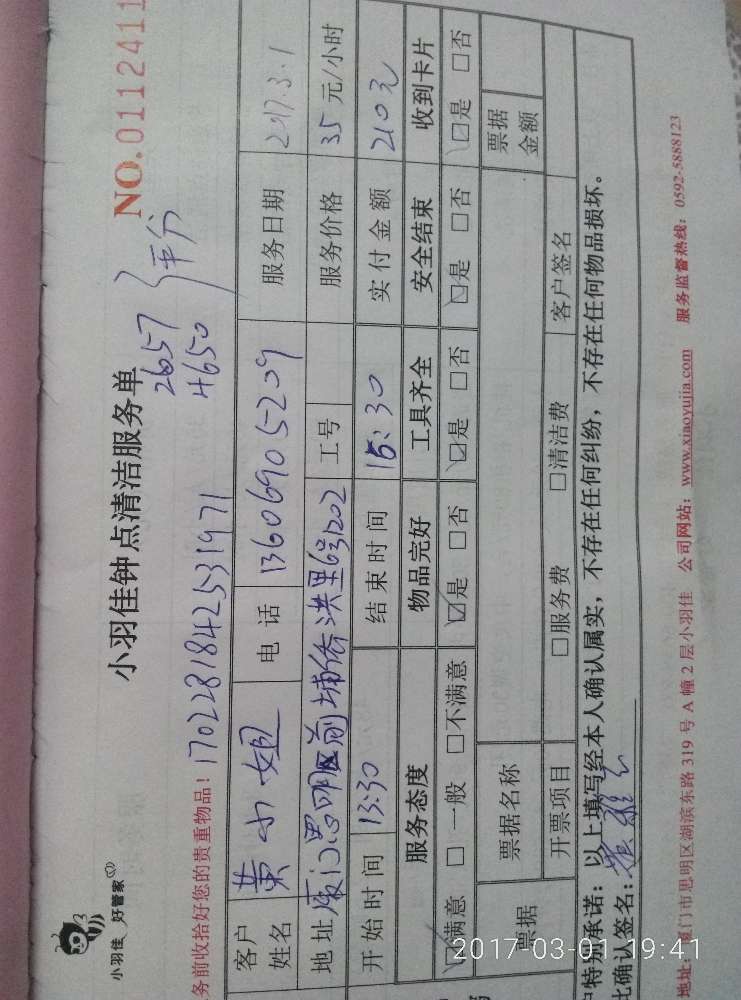 小羽佳 好管家
小羽佳钟点清洁服务单
NO.0112411
务前收拾好您的贵重物品！1702281842531971
2657
4650
平分
客户姓名 黄小姐 电话 13606905209 服务日期 2017.3.1
地址 厦门思明区前埔侨洪里6号1202 工号 服务价格 35 元/小时
开始时间 13:30 结束时间 15:30 实付金额 210元
服务态度 物品完好 工具齐全 安全结束 收到卡片
☑满意 □一般 □不满意 ☑是 □否 ☑是 □否 ☑是 □否 ☑是 □否
票据 票据名称 票据金额
开票项目 □服务费 □清洁费 客户签名
户特别承诺：以上填写经本人确认属实，不存在任何纠纷，不存在任何物品损坏。
此确认签名：
地址：厦门市思明区湖滨东路 319 号 A 幢 2 层小羽佳 公司网站：www.xiaoyujia.com 服务监督热线：0592-5888123
2017-03-01 19:41